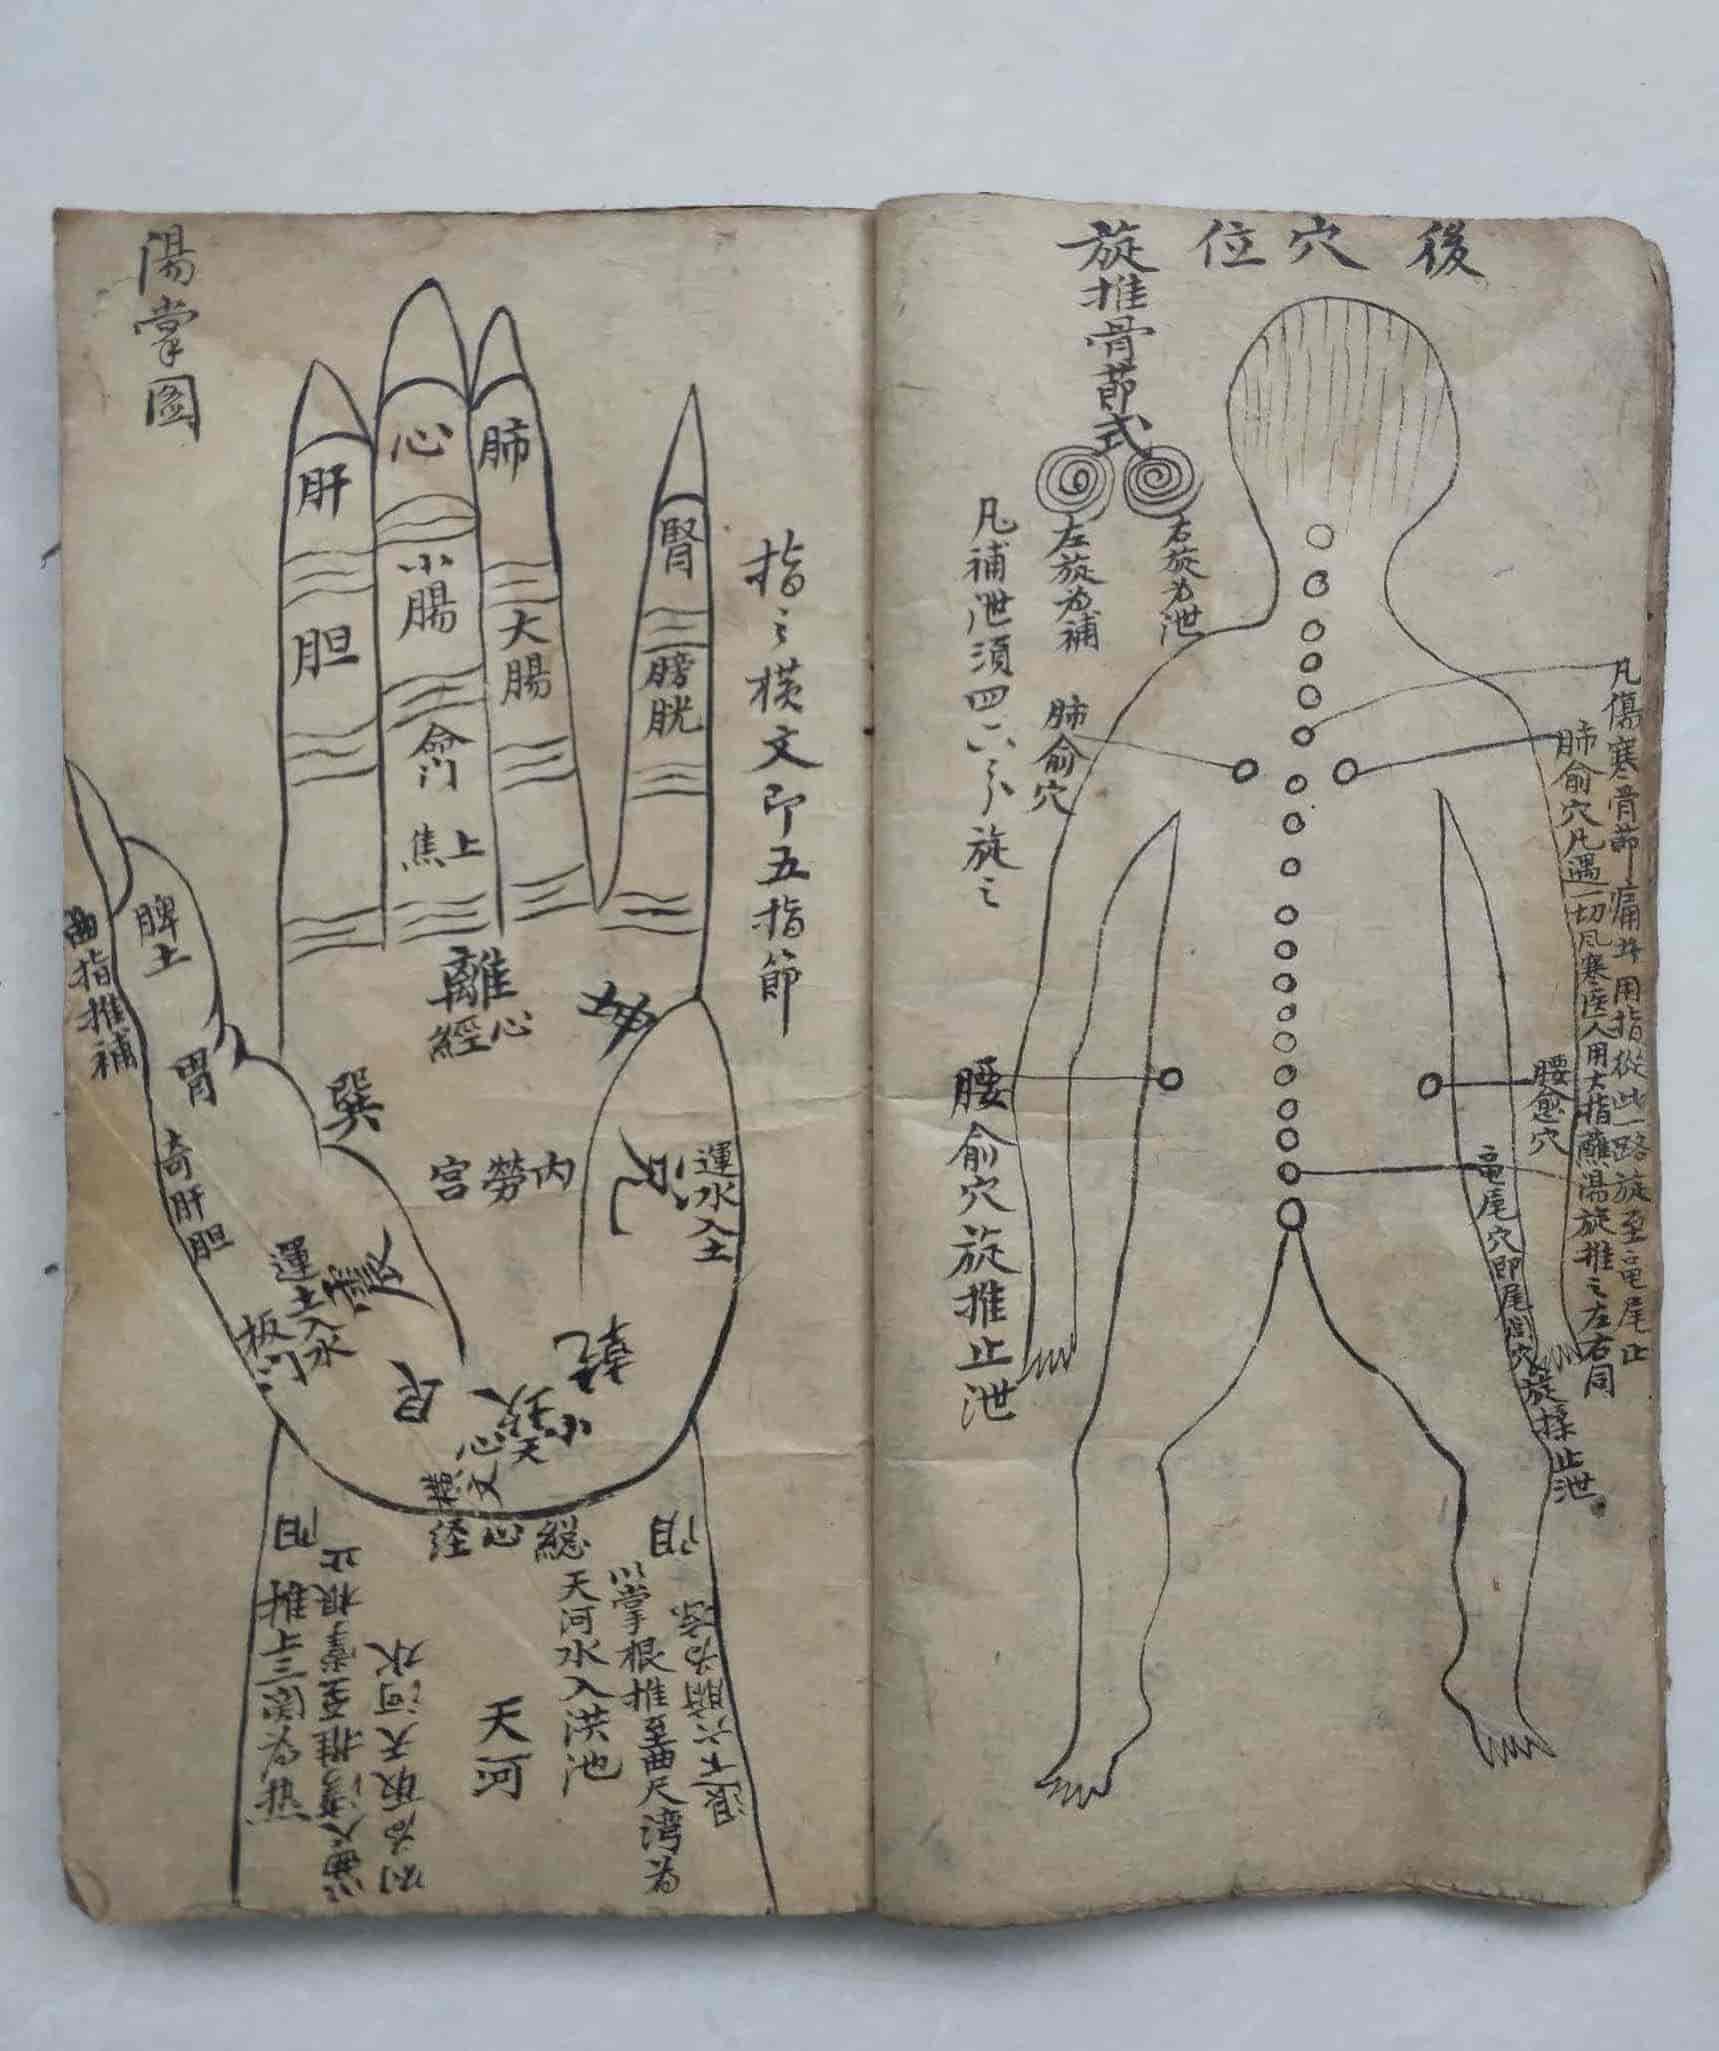 後穴位
旋推骨節式
右旋为泄
左旋为補
凡補泄須四六分旋之
凡傷寒骨節痛並用指從此一路旋至龟尾止
肺俞穴凡遇一切风寒医人用大指蘸湯旋推之左右同
肺俞穴
腰愈穴
龟尾穴即尾閭穴旋揉止泄
腰俞穴旋推止泄
湯掌图
指之横文即五指節
肝
胆
心
小腸
命门
上焦
肺
大腸
腎
膀胱
脾土
胃
曲指推補
奇肝胆
離
心經
巽
内勞宫
兑
運水入土
運土入水
板门
艮
乾
坎
小天心
総心经
天河
以掌根推至曲尺湾为
天河水入洪池
推上三関为热
退下六腑为
曲尺湾推至掌根止
则为取天河水